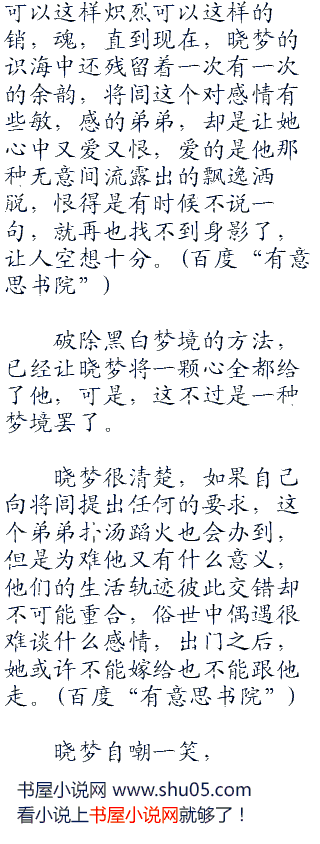 可以这样炽烈可以这样的
销，魂，直到现在，晓梦的
识海中还残留着一次有一次
的余韵，将闾这个对感情有
些敏，感的弟弟，却是让她
心中又爱又恨，爱的是他那
种无意间流露出的飘逸洒
脱，恨得是有时候不说一
句，就再也找不到身影了，
让人空想十分。(百度“有意
思书院”)
破除黑白梦境的方法，
已经让晓梦将一颗心全都给
了他，可是，这不过是一种
梦境罢了。
晓梦很清楚，如果自己
向将闾提出任何的要求，这
个弟弟扑汤蹈火也会办到，
但是为难他又有什么意义，
他们的生活轨迹彼此交错却
不可能重合，俗世中偶遇很
难谈什么感情，出门之后，
她或许不能嫁给也不能跟他
走。(百度“有意思书院”)
晓梦自嘲一笑，
书屋小说网 www.shu05.com
看小说上书屋小说网就够了！